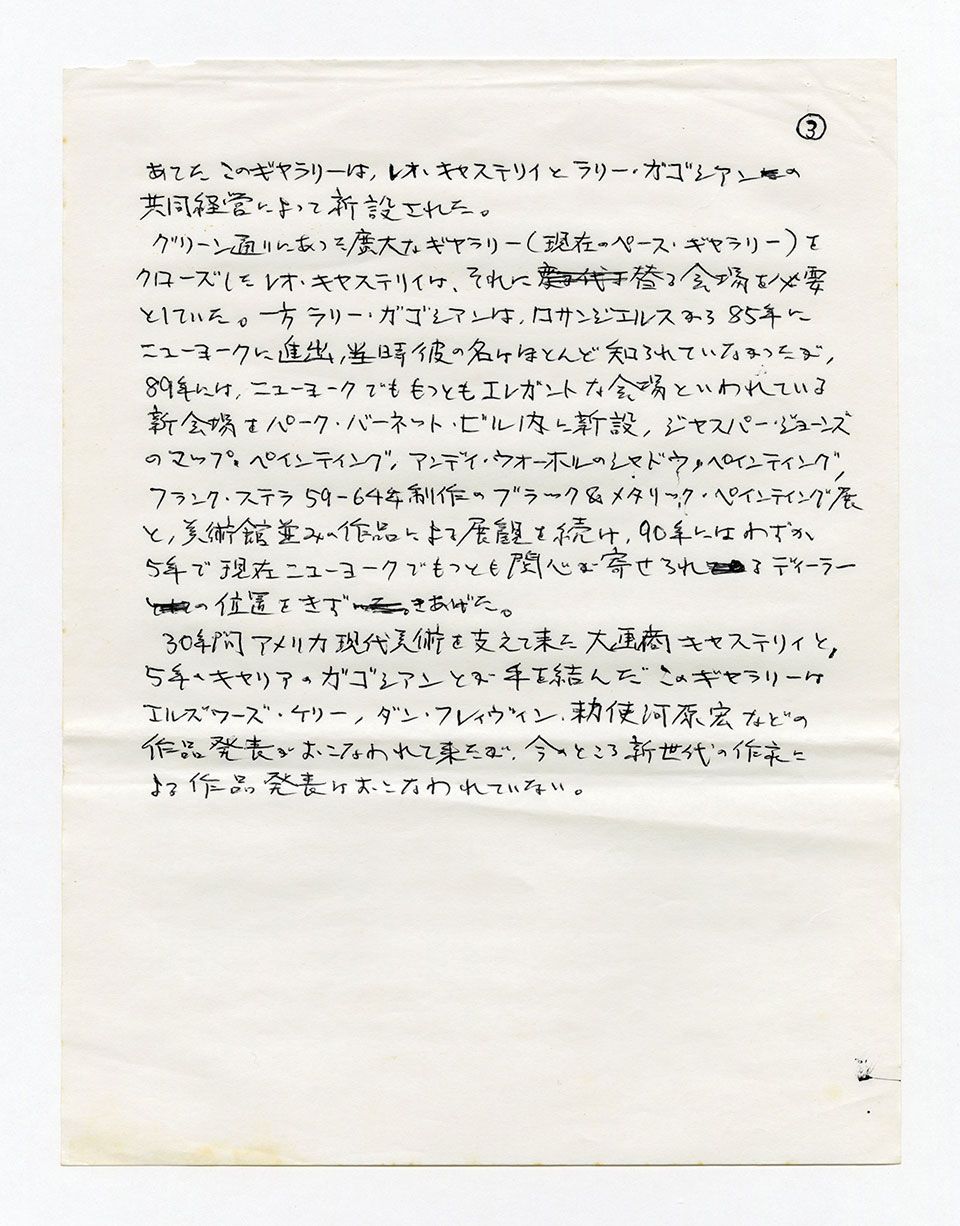 ③
あてた このギャラリーは, レオ・キャステリィと ラリー・ガゴシアンの
共同経営によって新設された。
グリーン通りにあった廣大なギャラリー(現在のペース・ギャラリー)を
クローズした レオ・キャステリィは、それに替る会場を必要
としていた。一方 ラリー・ガゴシアンは, ロサンジェルスから 85年に
ニューヨークに進出, 当時彼の名はほとんど知られていなかったが,
89年には, ニューヨークでももっともエレガントな会場といわれている
新会場をパーク・バーネット・ビル内に新設, ジャスパー・ジョーンズ
のマップ・ペインティング, アンディ・ウォーホルのシャドウ・ペインティング,
フランク・ステラ 59-64年制作のブラック&メタリック・ペインティング展
と, 美術館並みの作品による展観を続け, 90年にはわずか
5年で現在ニューヨークでもっとも関心が寄せられるディーラー
の位置をきずきあげた。
30年間アメリカ現代美術を支えて来た大画商キャステリィと,
5年のキャリアのガゴシアンとが手を結んだこのギャラリーは
エルズワーズ・ケリー, ダン・フレィヴィン, 勅使河原宏などの
作品発表がおこなわれて来たが, 今のところ新世代の作家に
よる作品発表はおこなわれていない。